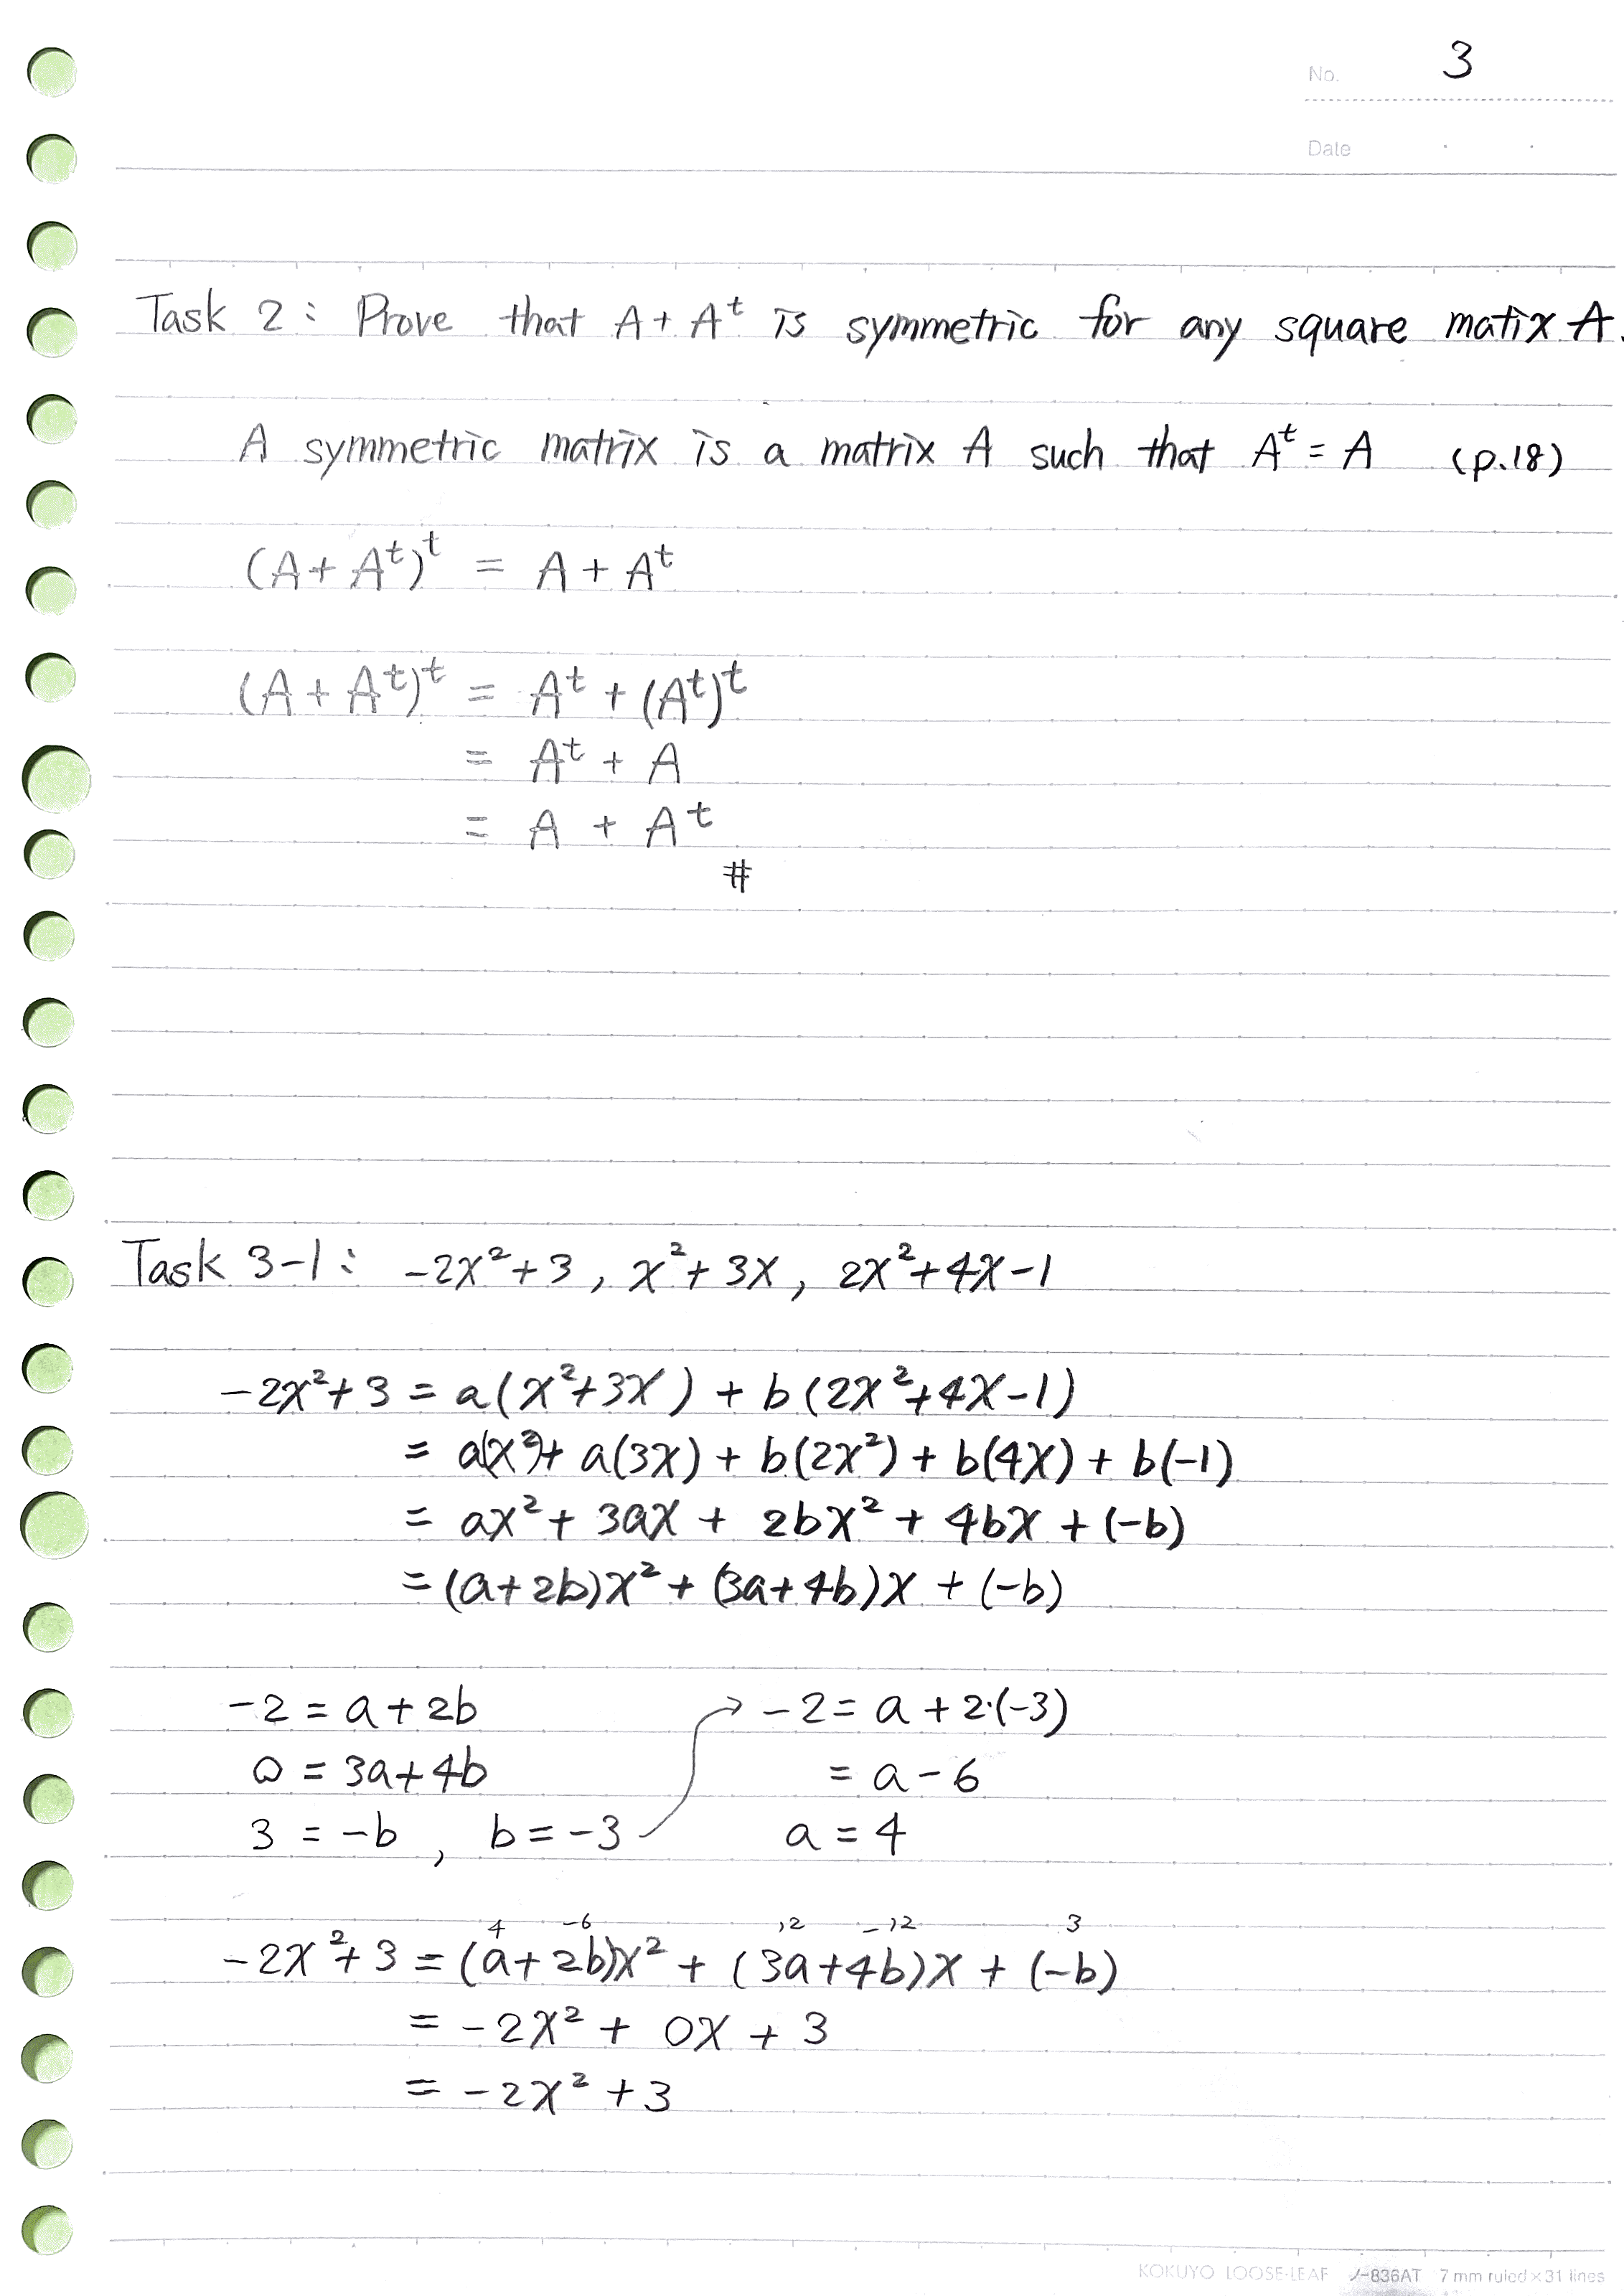 No. 3
Date
Task 2: Prove that A + Aᵗ is symmetric for any square matix A.
A symmetric matrix is a matrix A such that Aᵗ = A (p.18)
(A + Aᵗ)ᵗ = A + Aᵗ
(A + Aᵗ)ᵗ = Aᵗ + (Aᵗ)ᵗ
= Aᵗ + A
= A + Aᵗ
#
Task 3-1: -2x² + 3, x² + 3x, 2x² + 4x - 1
-2x² + 3 = a(x² + 3x) + b(2x² + 4x - 1)
= a(x²) + a(3x) + b(2x²) + b(4x) + b(-1)
= ax² + 3ax + 2bx² + 4bx + (-b)
= (a + 2b)x² + (3a + 4b)x + (-b)
-2 = a + 2b → -2 = a + 2·(-3)
0 = 3a + 4b = a - 6
3 = -b, b = -3 a = 4
4 -6 12 -12 3
-2x² + 3 = (a + 2b)x² + (3a + 4b)x + (-b)
= -2x² + 0x + 3
= -2x² + 3
KOKUYO LOOSE-LEAF ノ-836AT 7 mm ruled × 31 lines